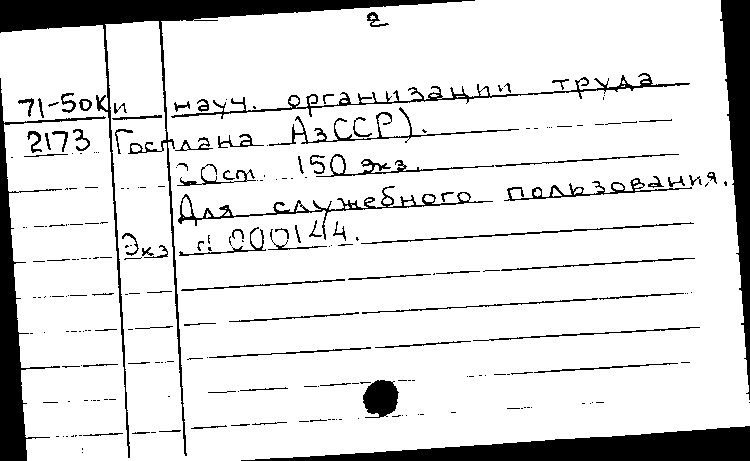 2
71-50Ки науч. организации труда
2173 Госплана АзССР).
20см. 150 экз.
Для служебного пользования.
Экз. n! 000144.